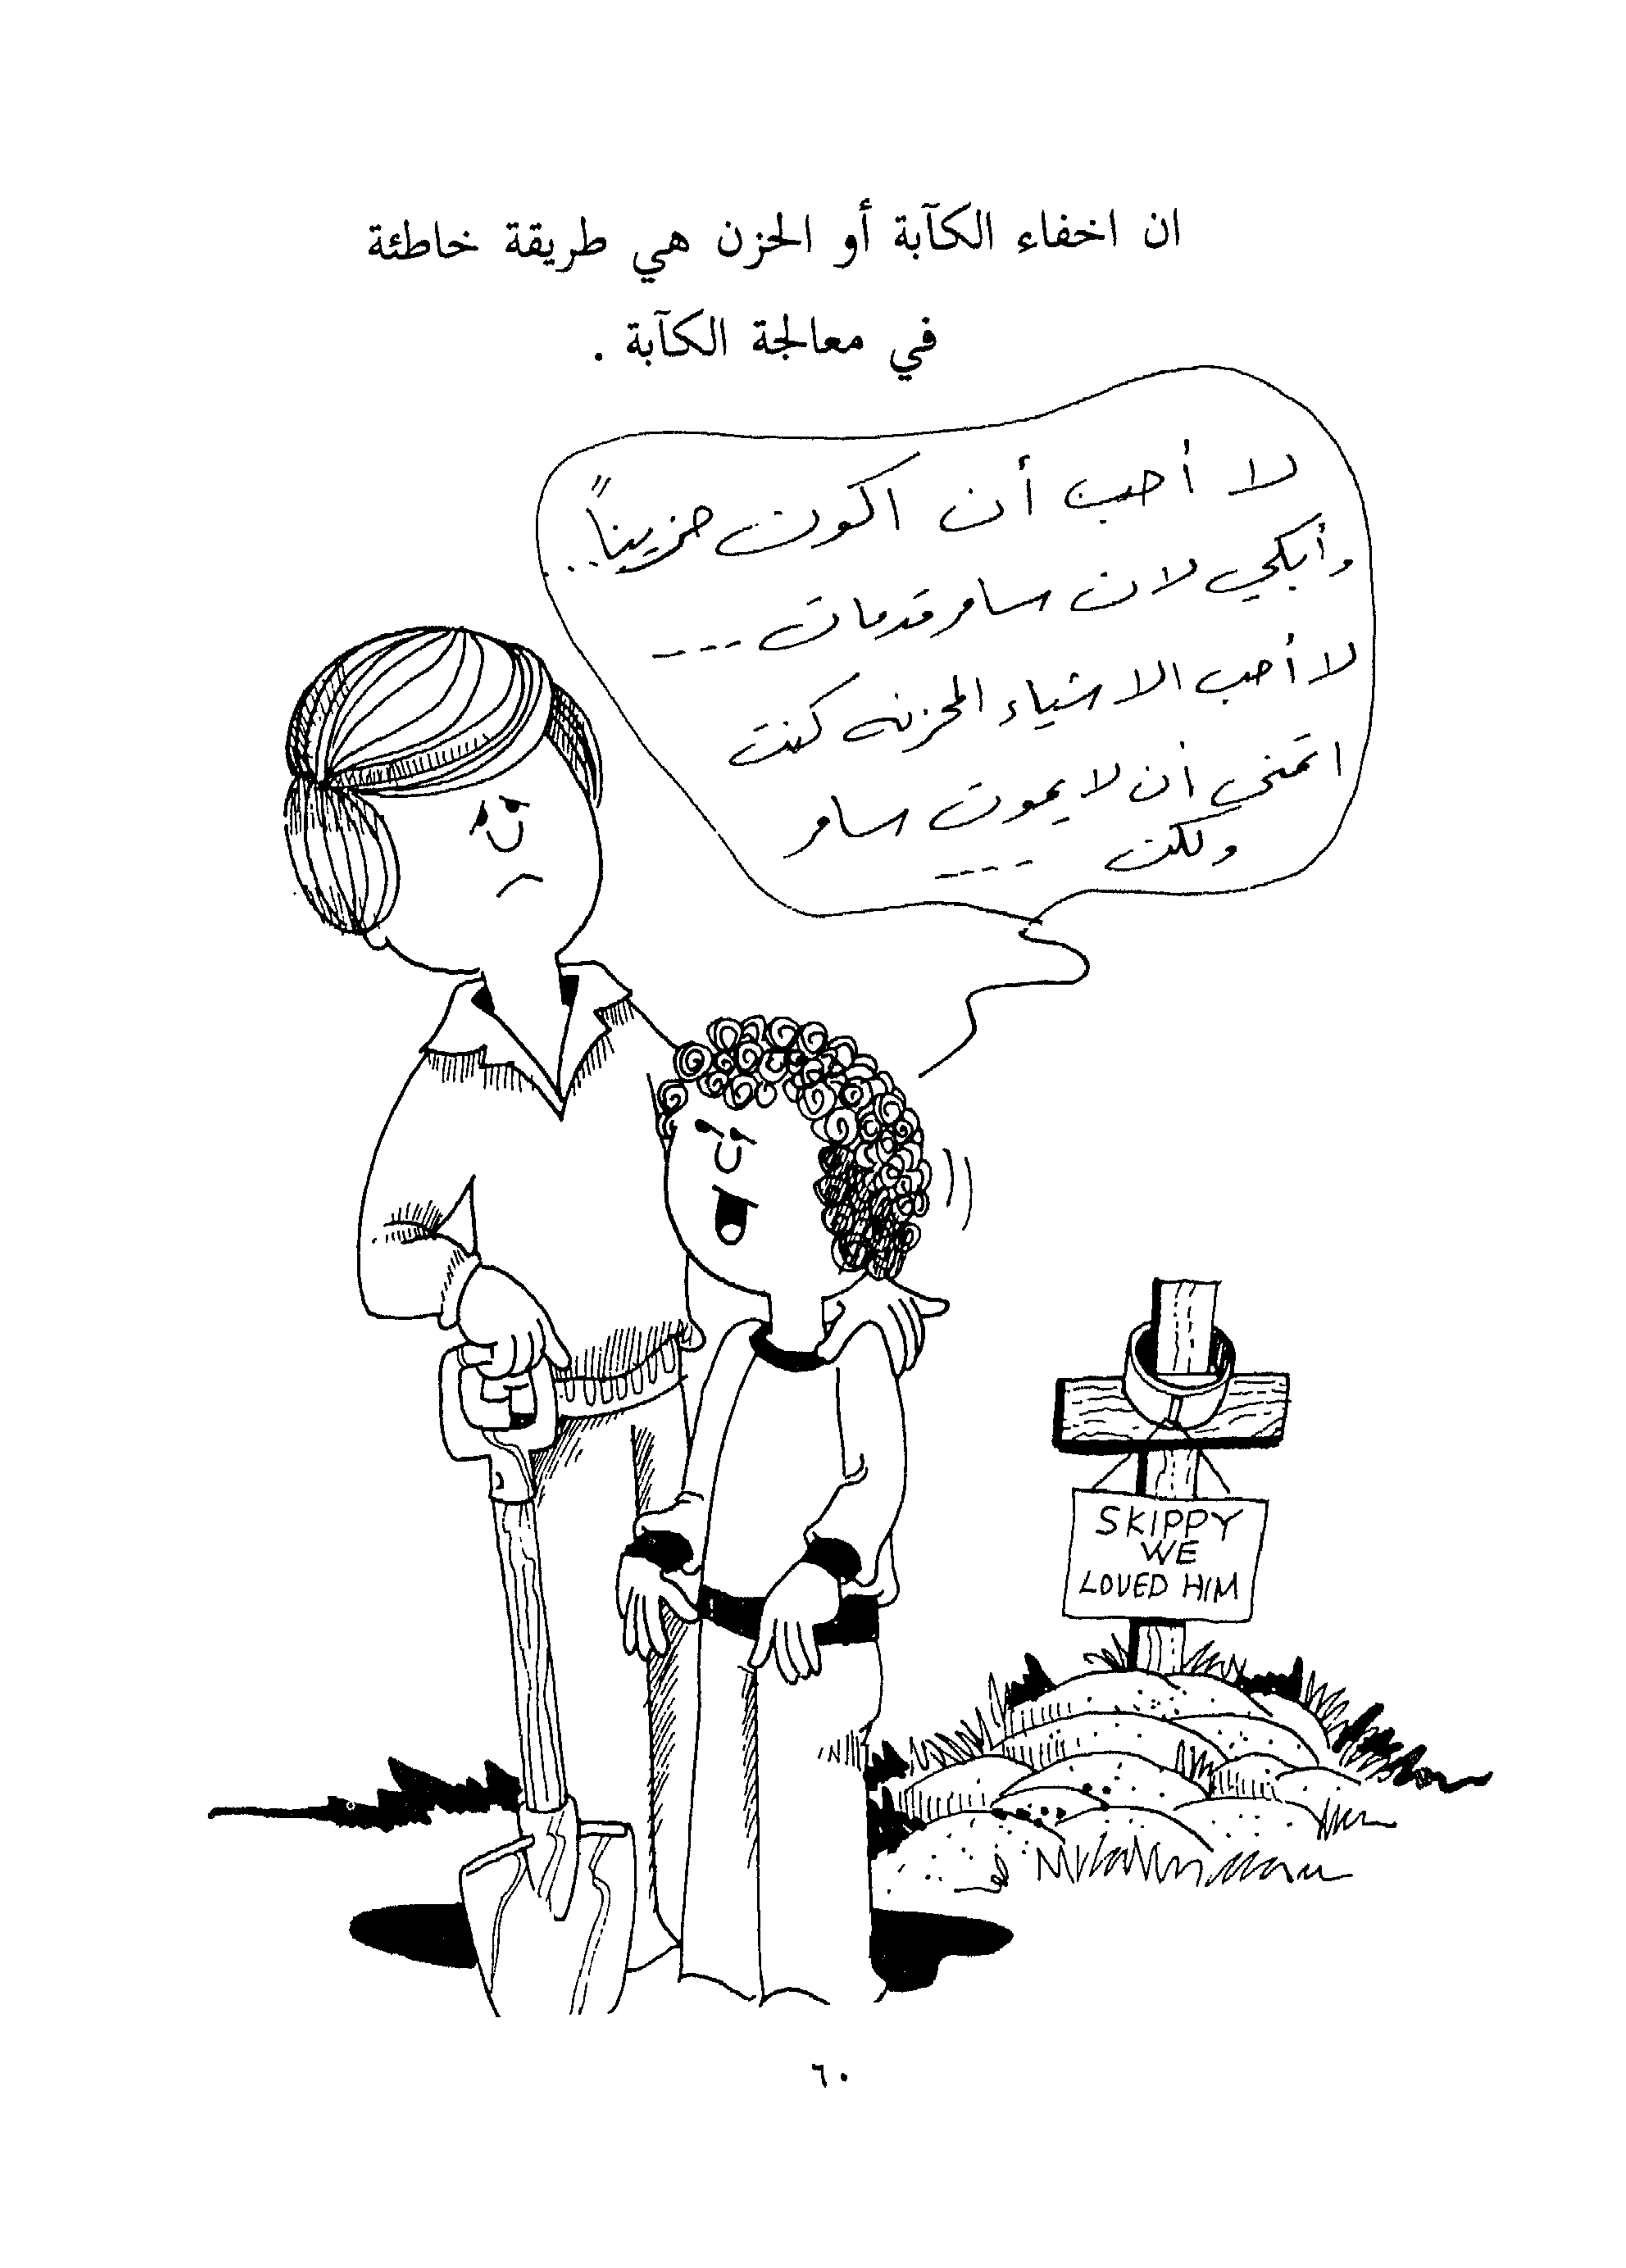 ان اخفاء الكآبة أو الحزن هي طريقة خاطئة
في معالجة الكآبة .
لا أحب أن اكون حزيناً ...
وأبكي لان سامر قد مات ---
لا أحب الاشياء المحزنه كنت
اتمنى أن لا يموت سامر
ولكن ---
SKIPPY
WE
LOVED HIM
٦٠